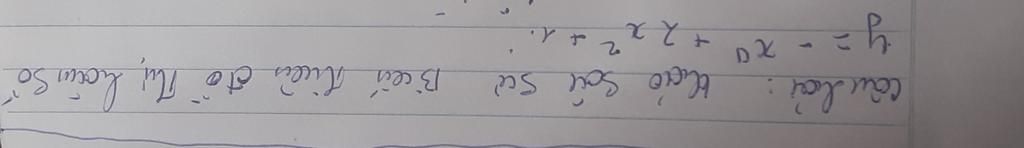 Câu hỏi: khảo sát sự biến thiên đồ thị hàm số
y = - x⁴ + 2x² + 1.